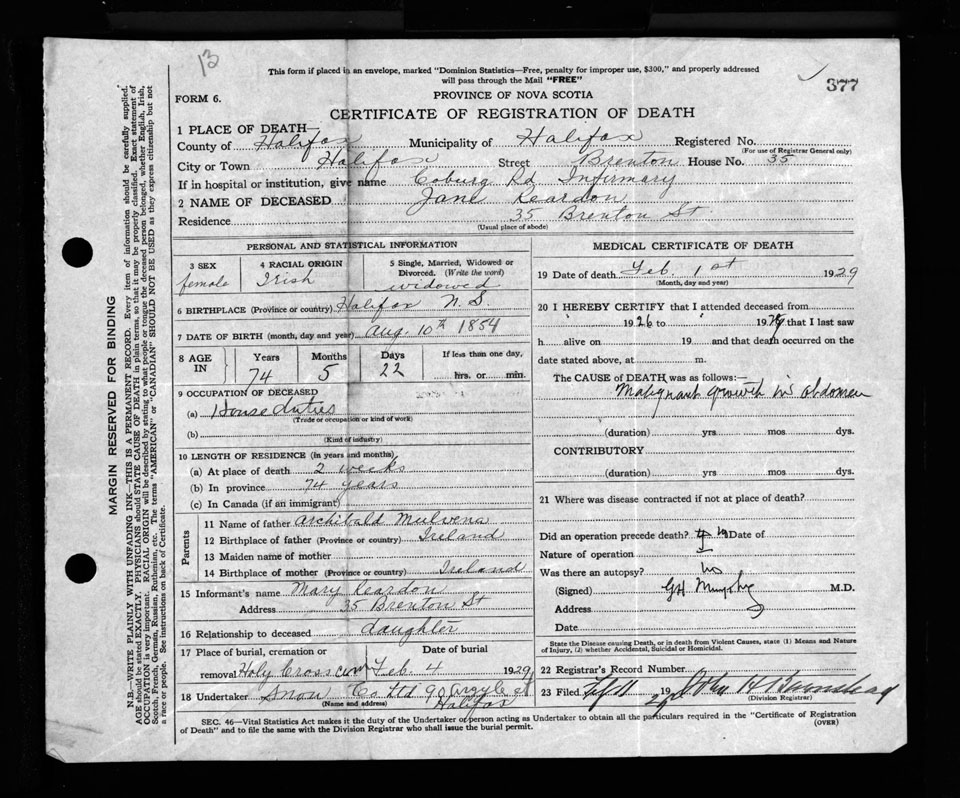 13
377
This form if placed in an envelope, marked "Dominion Statistics—Free, penalty for improper use, $300," and properly addressed
will pass through the Mail "FREE"
FORM 6.
PROVINCE OF NOVA SCOTIA
CERTIFICATE OF REGISTRATION OF DEATH
1 PLACE OF DEATH—
County of Halifax Municipality of Halifax Registered No.
(For use of Registrar General only)
City or Town Halifax Street Brenton House No. 35
If in hospital or institution, give name Coburg Rd Infirmary
2 NAME OF DECEASED Jane Reardon
Residence 35 Brenton St.
(Usual place of abode)
PERSONAL AND STATISTICAL INFORMATION
3 SEX female
4 RACIAL ORIGIN Irish
5 Single, Married, Widowed or
Divorced. (Write the word)
widowed
6 BIRTHPLACE (Province or country) Halifax N.S.
7 DATE OF BIRTH (month, day and year) Aug. 10th 1854
8 AGE IN Years 74 Months 5 Days 22 If less than one day,
hrs. or min.
9 OCCUPATION OF DECEASED
(a) House duties
(Trade or occupation or kind of work)
(b)
(Kind of industry)
10 LENGTH OF RESIDENCE (in years and months)
(a) At place of death 2 weeks
(b) In province 74 years
(c) In Canada (if an immigrant)
Parents
11 Name of father Archibald Mulvena
12 Birthplace of father (Province or country) Ireland
13 Maiden name of mother
14 Birthplace of mother (Province or country) Ireland
15 Informant's name Mary Reardon
Address 35 Brenton St
16 Relationship to deceased daughter
17 Place of burial, cremation or
removal Holy Cross cem
Date of burial
Feb. 4 1929
18 Undertaker Snow Co Ltd 90 Argyle st
(Name and address) Halifax
MEDICAL CERTIFICATE OF DEATH
19 Date of death Feb. 1st 1929
(Month, day and year)
20 I HEREBY CERTIFY that I attended deceased from
1926 to 1929 that I last saw
h alive on 19 and that death occurred on the
date stated above, at m.
The CAUSE OF DEATH was as follows:—
Malignant growth in abdomen
(duration) yrs mos dys.
CONTRIBUTORY
(duration) yrs mos dys.
21 Where was disease contracted if not at place of death?
Did an operation precede death? Date of
Nature of operation
Was there an autopsy? no
(Signed) GH Murphy M.D.
Address
Date
State the Disease causing Death, or in death from Violent Causes, state (1) Means and Nature
of Injury, (2) whether Accidental, Suicidal or Homicidal.
22 Registrar's Record Number
23 Filed 19 29 John H
(Division Registrar)
SEC. 46—Vital Statistics Act makes it the duty of the Undertaker or person acting as Undertaker to obtain all the particulars required in the "Certificate of Registration
of Death" and to file the same with the Division Registrar who shall issue the burial permit.
(OVER)
MARGIN RESERVED FOR BINDING
N.B.—WRITE PLAINLY WITH UNFADING INK—THIS IS A PERMANENT RECORD. Every item of information should be carefully supplied.
AGE should be stated EXACTLY. PHYSICIANS should STATE CAUSE OF DEATH in plain terms, so that it may be properly classified. Exact statement of
OCCUPATION is very important. RACIAL ORIGIN will be described by stating to what people or tongue the deceased person belonged, whether English, Irish,
Scotch, French, German, Russian, Ruthenian, etc. The terms "AMERICAN" or "CANADIAN" SHOULD NOT BE USED as they express citizenship but not
a race or people. See instructions on back of Certificate.